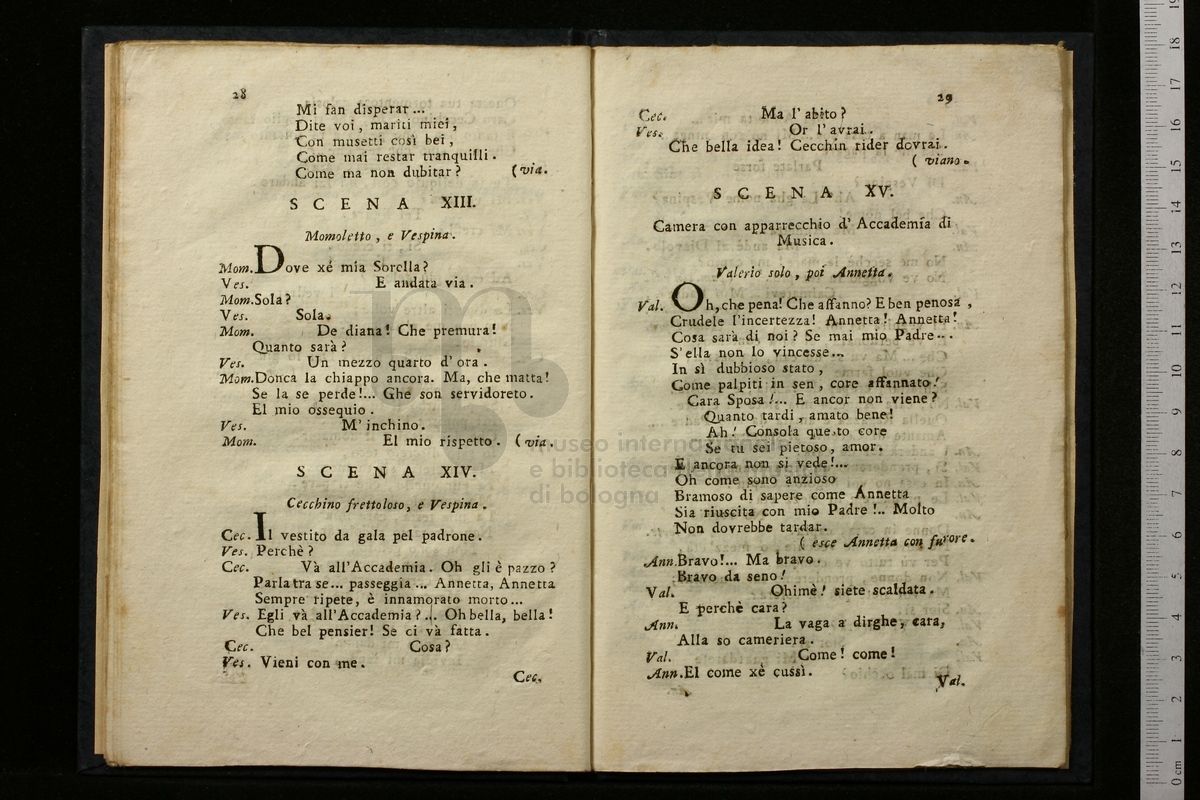 28
Mi fan disperar ...
Dite voi, mariti miei,
Con musetti così bei,
Come mai restar tranquilli.
Come ma non dubitar? (via.
SCENA XIII.
Momoletto, e Vespina.
Mom. Dove xé mia Sorella?
Ves. E andata via.
Mom. Sola?
Ves. Sola.
Mom. De diana! Che premura!
Quanto sarà?
Ves. Un mezzo quarto d'ora.
Mom. Donca la chiappo ancora. Ma, che matta!
Se la se perde!... Ghe son servidoreto.
El mio ossequio.
Ves. M'inchino.
Mom. El mio rispetto. (via.
SCENA XIV.
Cecchino frettoloso, e Vespina.
Cec. Il vestito da gala pel padrone.
Ves. Perchè?
Cec. Và all'Accademia. Oh gli è pazzo?
Parla tra se... passeggia ... Annetta, Annetta
Sempre ripete, è innamorato morto...
Ves. Egli và all'Accademia?... Oh bella, bella!
Che bel pensier! Se ci và fatta.
Cec. Cosa?
Ves. Vieni con me.
Cec.
29
Cec. Ma l'abito?
Ves. Or l'avrai..
Che bella idea! Cecchin rider dovrai..
( viano.
SCENA XV.
Camera con apparrecchio d'Accademia di
Musica.
Valerio solo, poi Annetta.
Val. Oh, che pena! Che affanno? E ben penosa,
Crudele l'incertezza! Annetta! Annetta!
Cosa sarà di noi? Se mai mio Padre...
S'ella non lo vincesse...
In sì dubbioso stato,
Come palpiti in sen, core affannato!
Cara Sposa!... E ancor non viene?
Quanto tardi, amato bene!
Ah! Consola questo core
Se tu sei pietoso, amor.
E ancora non si vede!...
Oh come sono anzioso
Bramoso di sapere come Annetta
Sia riuscita con mio Padre!.. Molto
Non dovrebbe tardar.
( esce Annetta con furore.
Ann. Bravo!... Ma bravo.
Bravo da seno!
Val. Ohimè! siete scaldata.
E perchè cara?
Ann. La vaga a dirghe, cara,
Alla so cameriera.
Val. Come! come!
Ann. El come xè cussì.
Val.
museo internazionale
e biblioteca della musica
di bologna
0 cm 1 2 3 4 5 6 7 8 9 10 11 12 13 14 15 16 17 18 19